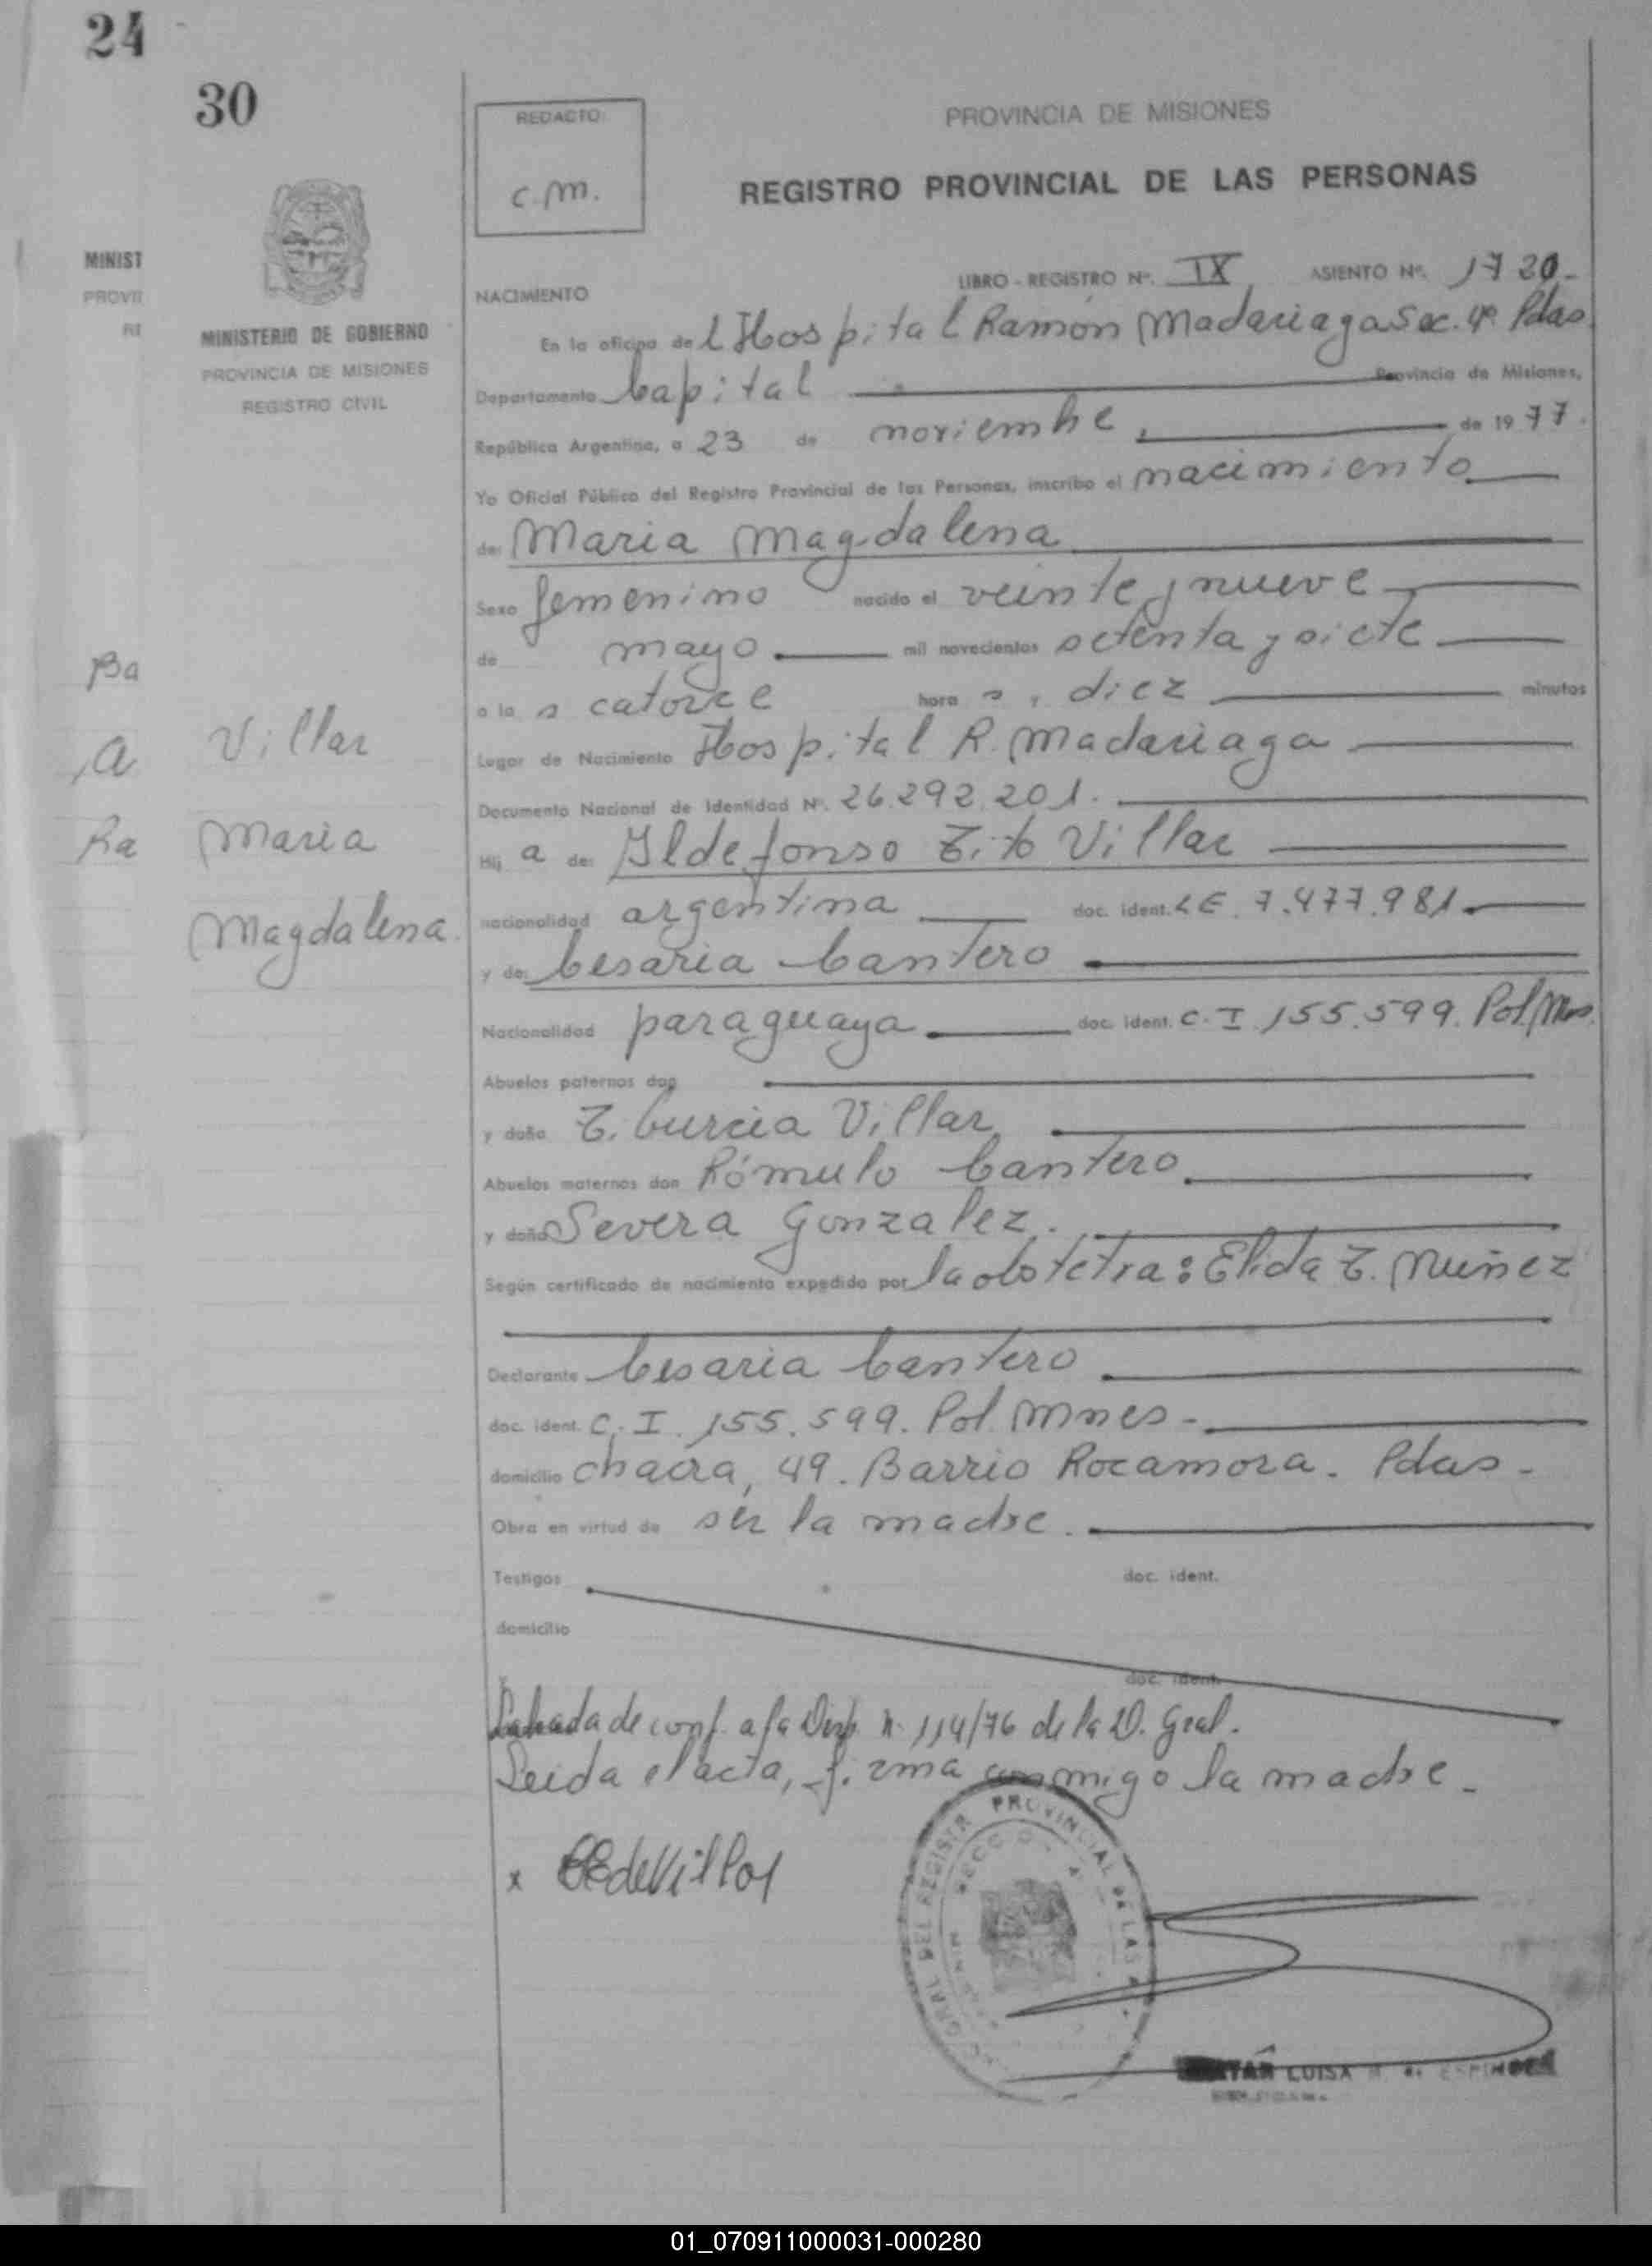 24
30
REDACTO:
c.m.
PROVINCIA DE MISIONES
REGISTRO PROVINCIAL DE LAS PERSONAS
MINIST
PROVII
MINISTERIO DE GOBIERNO
PROVINCIA DE MISIONES
REGISTRO CIVIL
LIBRO - REGISTRO Nº. IX ASIENTO Nº. 1720.-
NACIMIENTO
En la oficina del Hospital Ramón Madariaga Sec. 4ª Pdas
Departamento Capital Provincia de Misiones,
República Argentina, a 23 de noviembre, de 1977.
Yo Oficial Público del Registro Provincial de las Personas, inscribo el nacimiento
de: Maria Magdalena
Sexo femenino nacido el veinte y nueve
de mayo mil novecientos setenta y siete
a las catorce horas, diez minutos
Lugar de Nacimiento Hospital R. Madariaga
Documento Nacional de Identidad Nº. 26.292.201.
Hija de: Ildefonso Tito Villar
nacionalidad argentina doc. ident. LE. 7.477.981.
y de: Cesaria Cantero
Nacionalidad paraguaya doc. ident. C. I. 155.599. Pol. Mns.
Abuelos paternos don
y doña Tiburcia Villar
Abuelos maternos don Rómulo Cantero
y doña Severa Gonzalez.
Según certificado de nacimiento expedido por la obstetra: Elida T. Nuñez
Declarante Cesaria Cantero
doc. ident. C. I. 155.599. Pol. Mnes-
domicilio chacra, 49. Barrio Rocamora. Pdas-
Obra en virtud de ser la madre.
Testigos doc. ident.
domicilio
doc. ident.
Labrada de conf. a la Disp. n. 114/76 de la D. Gral.
Leida el acta, firma conmigo la madre.-
x CCdeVillar
Ba
A
Ra
Villar
Maria
Magdalena.
REGISTR PROVINCIAL DE LAS
LUISA
01_070911000031-000280